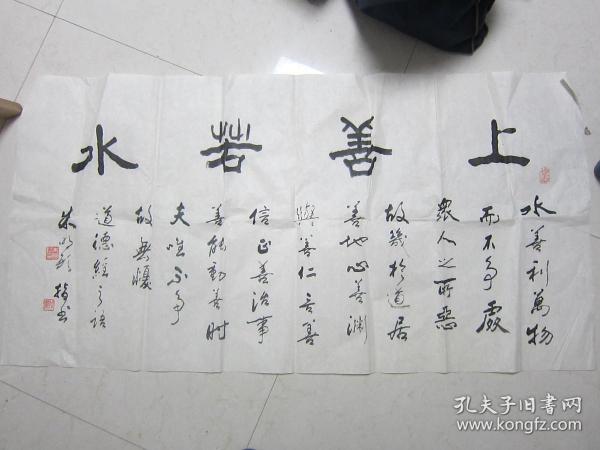 上善若水
水善利萬物
而不争處
衆人之所惡
故幾於道居
善地心善渊
與善仁言善
信正善治事
善能動善时
夫唯不争
故無懮
道德經之语
朱
书
孔夫子旧書网
www.kongfz.com